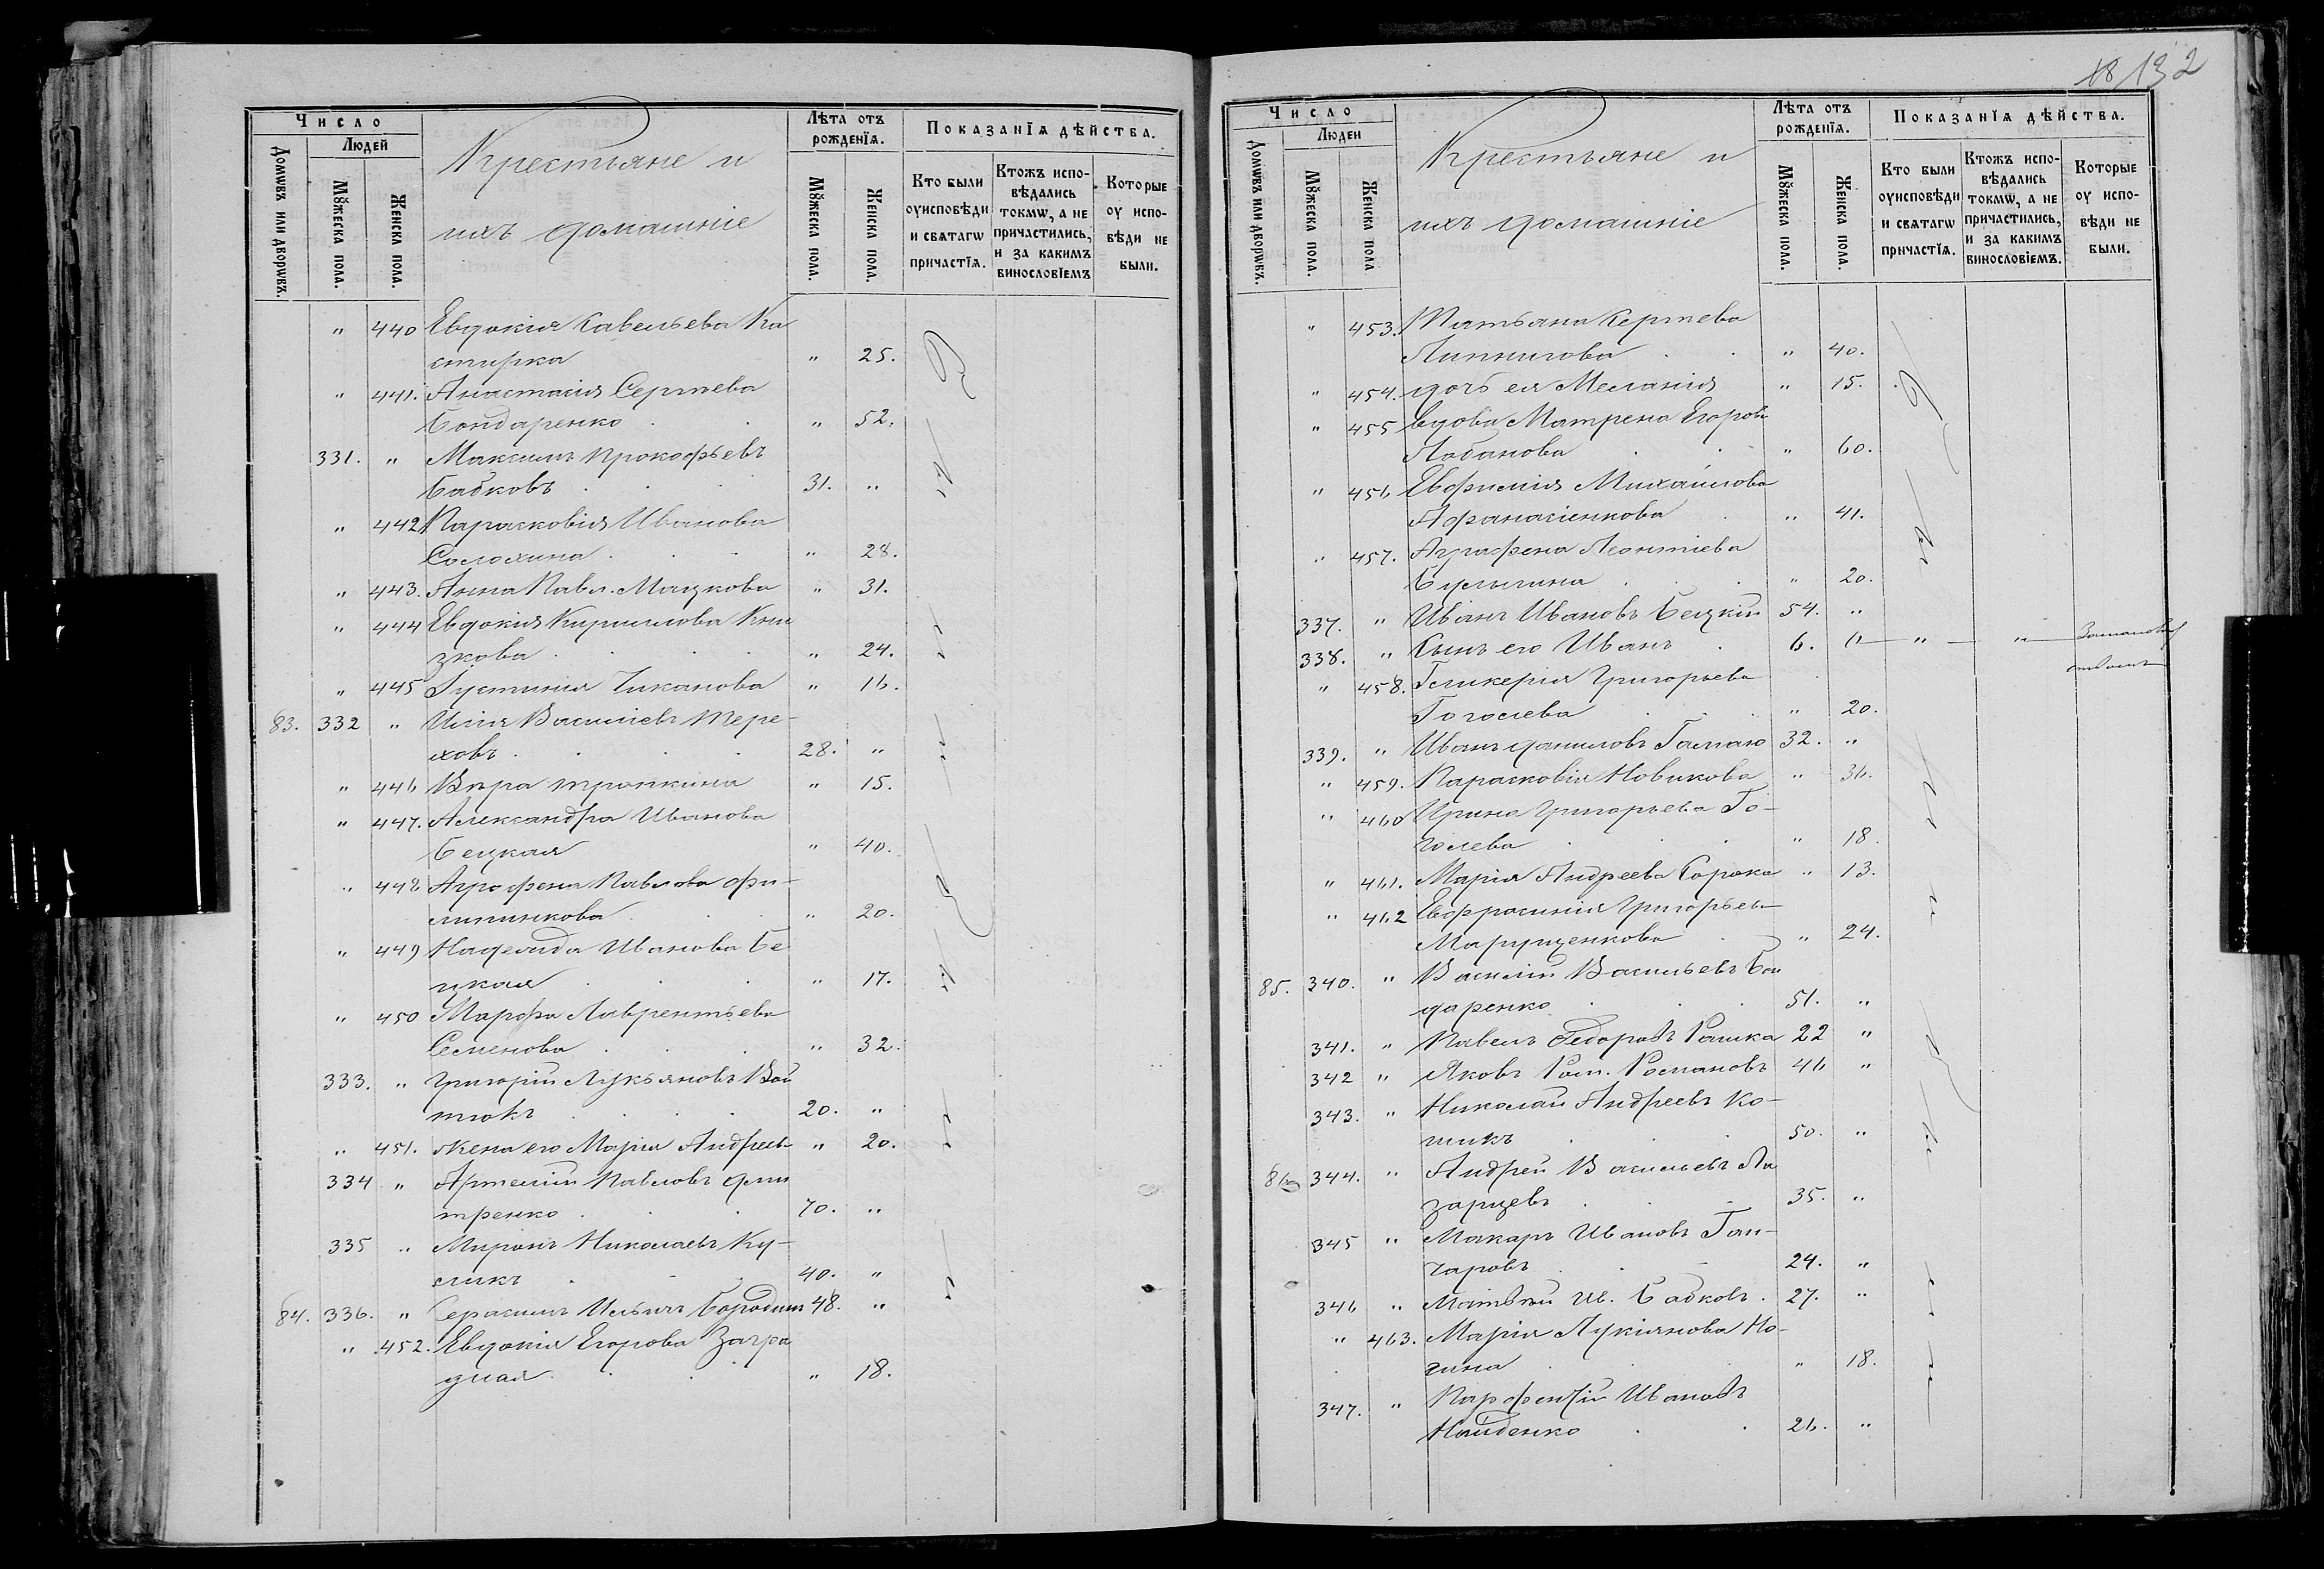 Число
Людей
Домѡвъ или дворѡвъ.
Мꙋжеска пола.
Женска пола.
Крестьяне и
ихъ домашніе
Лѣта отъ рожденїѧ.
Мꙋжеска пола.
Женска пола.
Показанїѧ дѣйства.
Кто были оуисповѣди и свѧтагѡ причастїѧ.
Ктожъ исповѣдались токмѡ, а не причастились, и за какимъ винословїемъ
Которые оу исповѣди не были.
" 440 Евдокия Савельева Ка
стирка " 25.
" 441. Анастасия Сергѣева
Бондаренко " 52.
331. " Максимъ Прокофьевъ
Бабковъ 31. "
" 442 Парасковія Иванова
Солохина " 28.
" 443. Анна Павл. Мацкова " 31.
" 444 Евдокия Кириллова Кни
зкова " 24.
" 445 Іустиния Чиканова " 16.
83. 332 " Илія Василіевъ Тере-
ховъ 28. "
" 446 Вѣра Тропкина " 15.
" 447. Александра Иванова
Бецкая " 40.
" 448 Агрофена Павлова Фи-
липинкова " 20.
" 449 Надежда Иванова Бе
цкая " 17.
" 450 Марфа Лаврентьева
Семенова " 32.
333. " Григорій Лукьяновъ Вой
тюкъ 20. "
" 451. жена его Марія Андреев " 20.
334 " Артемій Павловъ Дми
тренко 70. "
335 " Миронъ Николаевъ Ку-
ликъ 40. "
84. 336. " Герасимъ Ильичъ Бородин 48. "
" 452. Евдокія Егорова Загра
дная " 18.
18 132
Число
Людеи
Домѡвъ или дворѡвъ.
Мꙋжеска пола.
Женска пола
Крестьяне и
ихъ домашніе
Лѣта отъ рожденїѧ.
Мꙋжеска пола.
Женска пола.
Показанїѧ дѣйства.
Кто были оуисповѣди и свѧтагѡ причастїѧ.
Ктожъ исповѣдались токмѡ, а не причастились, и за какимъ винословїемъ.
Которые оу исповѣди не были.
" 453. Татьяна Сергѣева
Липнигова " 40.
" 454. дочь ея Меланія " 15.
" 455 вдова Матрена Егоров
Лобанова " 60.
" 456 Евфимия Михайлова
Афанасіенкова " 41.
" 457. Аграфена Леонтіева
Булыгина " 20.
337. " Иванъ Ивановъ Бецкій 54. "
338. " Сынъ его Иванъ 6. " " "
" 458. Гликерія Григорьева
Гоголева " 20.
339. " Иванъ Даниловъ Галаго 32. "
" 459. Парасковія Новикова " 36.
" 460 Ирина Григорьева Го-
голева " 18.
" 461. Марія Андреева Сорока " 13.
" 462 Евфросинія Григорьев
Марущенкова " 24.
85. 340. " Василій Васильевъ Бон
даренко 51. "
341. " Павелъ Федоровъ Рашка 22 "
342 " Яковъ Ром. Романовъ 46 "
343. " Николай Андреевъ Ко-
шикъ 50. "
86 344. " Андрей Васильевъ Ла
зарцевъ 35. "
345 " Макаръ Ивановъ Ган-
чаровъ 24. "
346 " Матвѣй Ив. Бабковъ 27. "
" 463. Марія Лукіянова Но-
чина " 18.
347. " Парфентій Ивановъ
Найденко 26. "